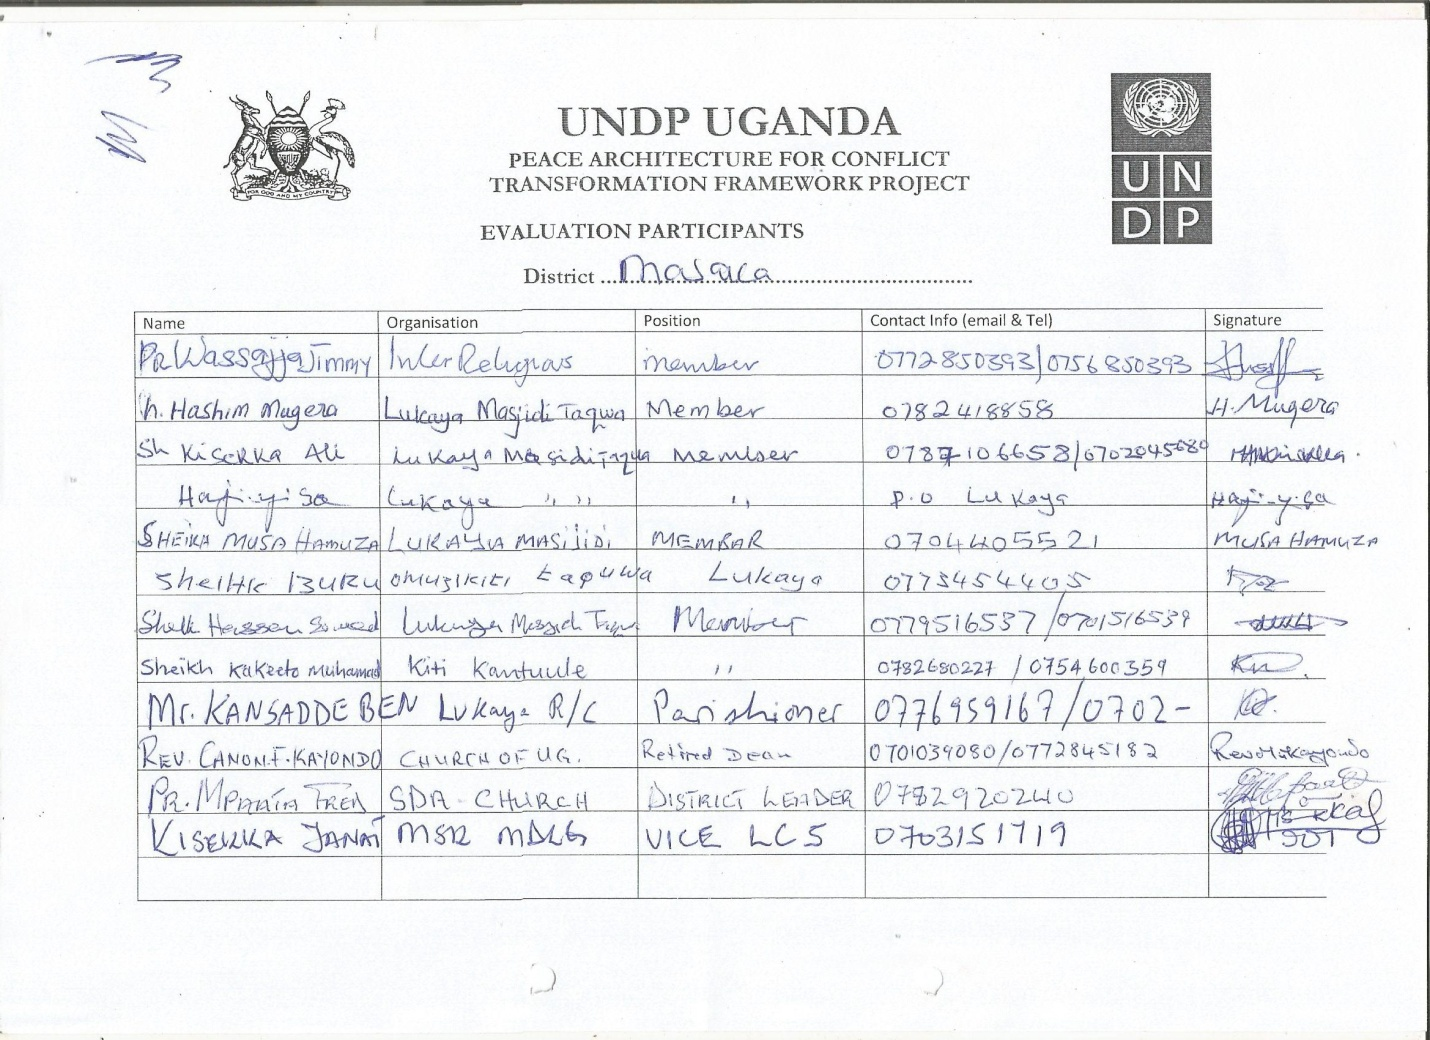 UNDP UGANDA
PEACE ARCHITECTURE FOR CONFLICT
TRANSFORMATION FRAMEWORK PROJECT
FOR GOD AND MY COUNTRY
UN
DP
EVALUATION PARTICIPANTS
District ... Masaca
Name Organisation Position Contact Info (email & Tel) Signature
PR Wassajja Jimmy Inter Religious member 0772850393/0756850393
h. Hashim Mugera Lukaya Masjidi Taqwa Member 0782418858 H. Mugera
Sh Kisekka Ali Lukaya Masjidi Taqwa Member 0787106658/0702045680
Haji-y-Sa Lukaya ,, ,, ,, P.O Lukaya Haji-y-Sa
SHEIKA MUSA HAMUZA LUKAYIA MASIJIDI MEMBAR 0704405521 MUSA HAMUZA
SheIHK BUKU OMUZIKITI taquwa Lukaya 0773454405
Sheik Hassan Lukaya Masjid Taqwa Member 0779516537 /0701516539
Sheikh Kakeeto Muhamad Kiti Kantuule ,, 0782680227 / 0754600359
Mr. KANSADDE BEN Lukaya R/C Parishioner 0776959167/0702-
REV. CANON.F.KAYONDO CHURCH OF UG. Retired Dean 0701039080/0772845182
PR. SDA-CHURCH DISTRICT LEADER 0782920240
KISEKKA JANAT MSK MDLG VICE LC5 0703151719